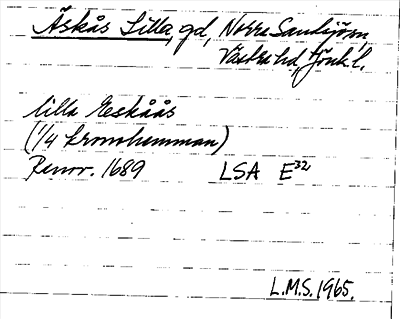 Äskås Lilla, gd, Norra Sandsjö sn
Västra hd, Jönk. l.
lilla Eeskåås
(1/4 kronohemman)
Renov. 1689 LSA E32
L.M.S. 1965.